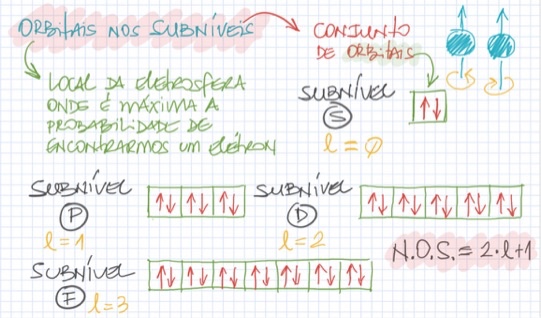 ORBITAIS NOS SUBNÍVEIS
CONJUNTO
DE ORBITAIS
LOCAL DA ELETROSFERA
ONDE É MÁXIMA A
PROBABILIDADE DE
ENCONTRARMOS UM ELÉTRON
SUBNÍVEL
S
l = 0
SUBNÍVEL
P
l = 1
SUBNÍVEL
D
l = 2
N.O.S. = 2·l+1
SUBNÍVEL
F
l = 3